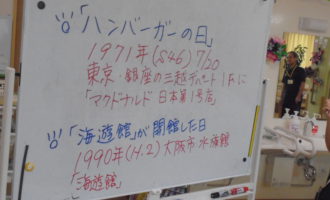 「ハンバーガーの日」
1971年(S46) 7/20
東京・銀座の三越デパート1Fに
「マクドナルド 日本第1号店」
「海遊館」が開館した日
1990年(H.2) 大阪市 水族館
「海遊館」